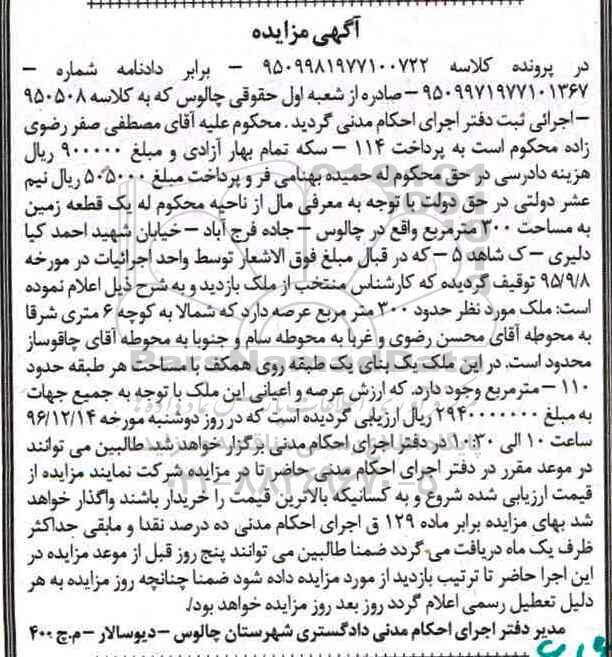 آگهی مزایده
در پرونده کلاسه ۹۵۰۹۹۸۱۹۷۷۱۰۰۷۲۲ – برابر دادنامه شماره –
۹۵۰۹۹۷۱۹۷۷۱۰۱۳۶۷ – صادره از شعبه اول حقوقی چالوس که به کلاسه ۹۵۰۵۰۸
– اجرائی ثبت دفتر اجرای احکام مدنی گردید . محکوم علیه آقای مصطفی صفر رضوی
زاده محکوم است به پرداخت ۱۱۴ – سکه تمام بهار آزادی و مبلغ ۹۰۰۰۰۰ ریال
هزینه دادرسی در حق محکوم له حمیده بهنامی فر و پرداخت مبلغ ۵۰۵۰۰۰ ریال نیم
عشر دولتی در حق دولت با توجه به معرفی مال از ناحیه محکوم له یک قطعه زمین
به مساحت ۳۰۰ مترمربع واقع در چالوس – جاده فرج آباد – خیابان شهید احمد کیا
دلیری – ک شاهد ۵ – که در قبال مبلغ فوق الاشعار توسط واحد اجرائیات در مورخه
۹۵/۹/۸ توقیف گردیده که کارشناس منتخب از ملک بازدید و به شرح ذیل اعلام نموده
است: ملک مورد نظر حدود ۳۰۰ متر مربع عرصه دارد که شمالا به کوچه ۶ متری شرقا
به محوطه آقای محسن رضوی و غربا به محوطه سام و جنوبا به محوطه آقای چاقوساز
محدود است. در این ملک یک بنای یک طبقه روی همکف با مساحت هر طبقه حدود
۱۱۰ – مترمربع وجود دارد. که ارزش عرصه و اعیانی این ملک با توجه به جمیع جهات
به مبلغ ۲۹۴۰۰۰۰۰۰۰ ریال ارزیابی گردیده است که در روز دوشنبه مورخه ۹۶/۱۲/۱۴
ساعت ۱۰ الی ۱۰:۳۰ در دفتر اجرای احکام مدنی برگزار خواهد شد طالبین می توانند
در موعد مقرر در دفتر اجرای احکام مدنی حاضر تا در مزایده شرکت نمایند مزایده از
قیمت ارزیابی شده شروع و به کسانیکه بالاترین قیمت را خریدار باشند واگذار خواهد
شد بهای مزایده برابر ماده ۱۲۹ ق اجرای احکام مدنی ده درصد نقدا و مابقی حداکثر
ظرف یک ماه دریافت می گردد ضمنا طالبین می توانند پنج روز قبل از موعد مزایده در
این اجرا حاضر تا ترتیب بازدید از مورد مزایده داده شود ضمنا چنانچه روز مزایده به هر
دلیل تعطیل رسمی اعلام گردد روز بعد روز مزایده خواهد بود./
مدیر دفتر اجرای احکام مدنی دادگستری شهرستان چالوس – دیوسالار – م.چ ۴۰۰
ParsNamadData
۰۲۱-۸۸۳۴۹۶۷۰-۵